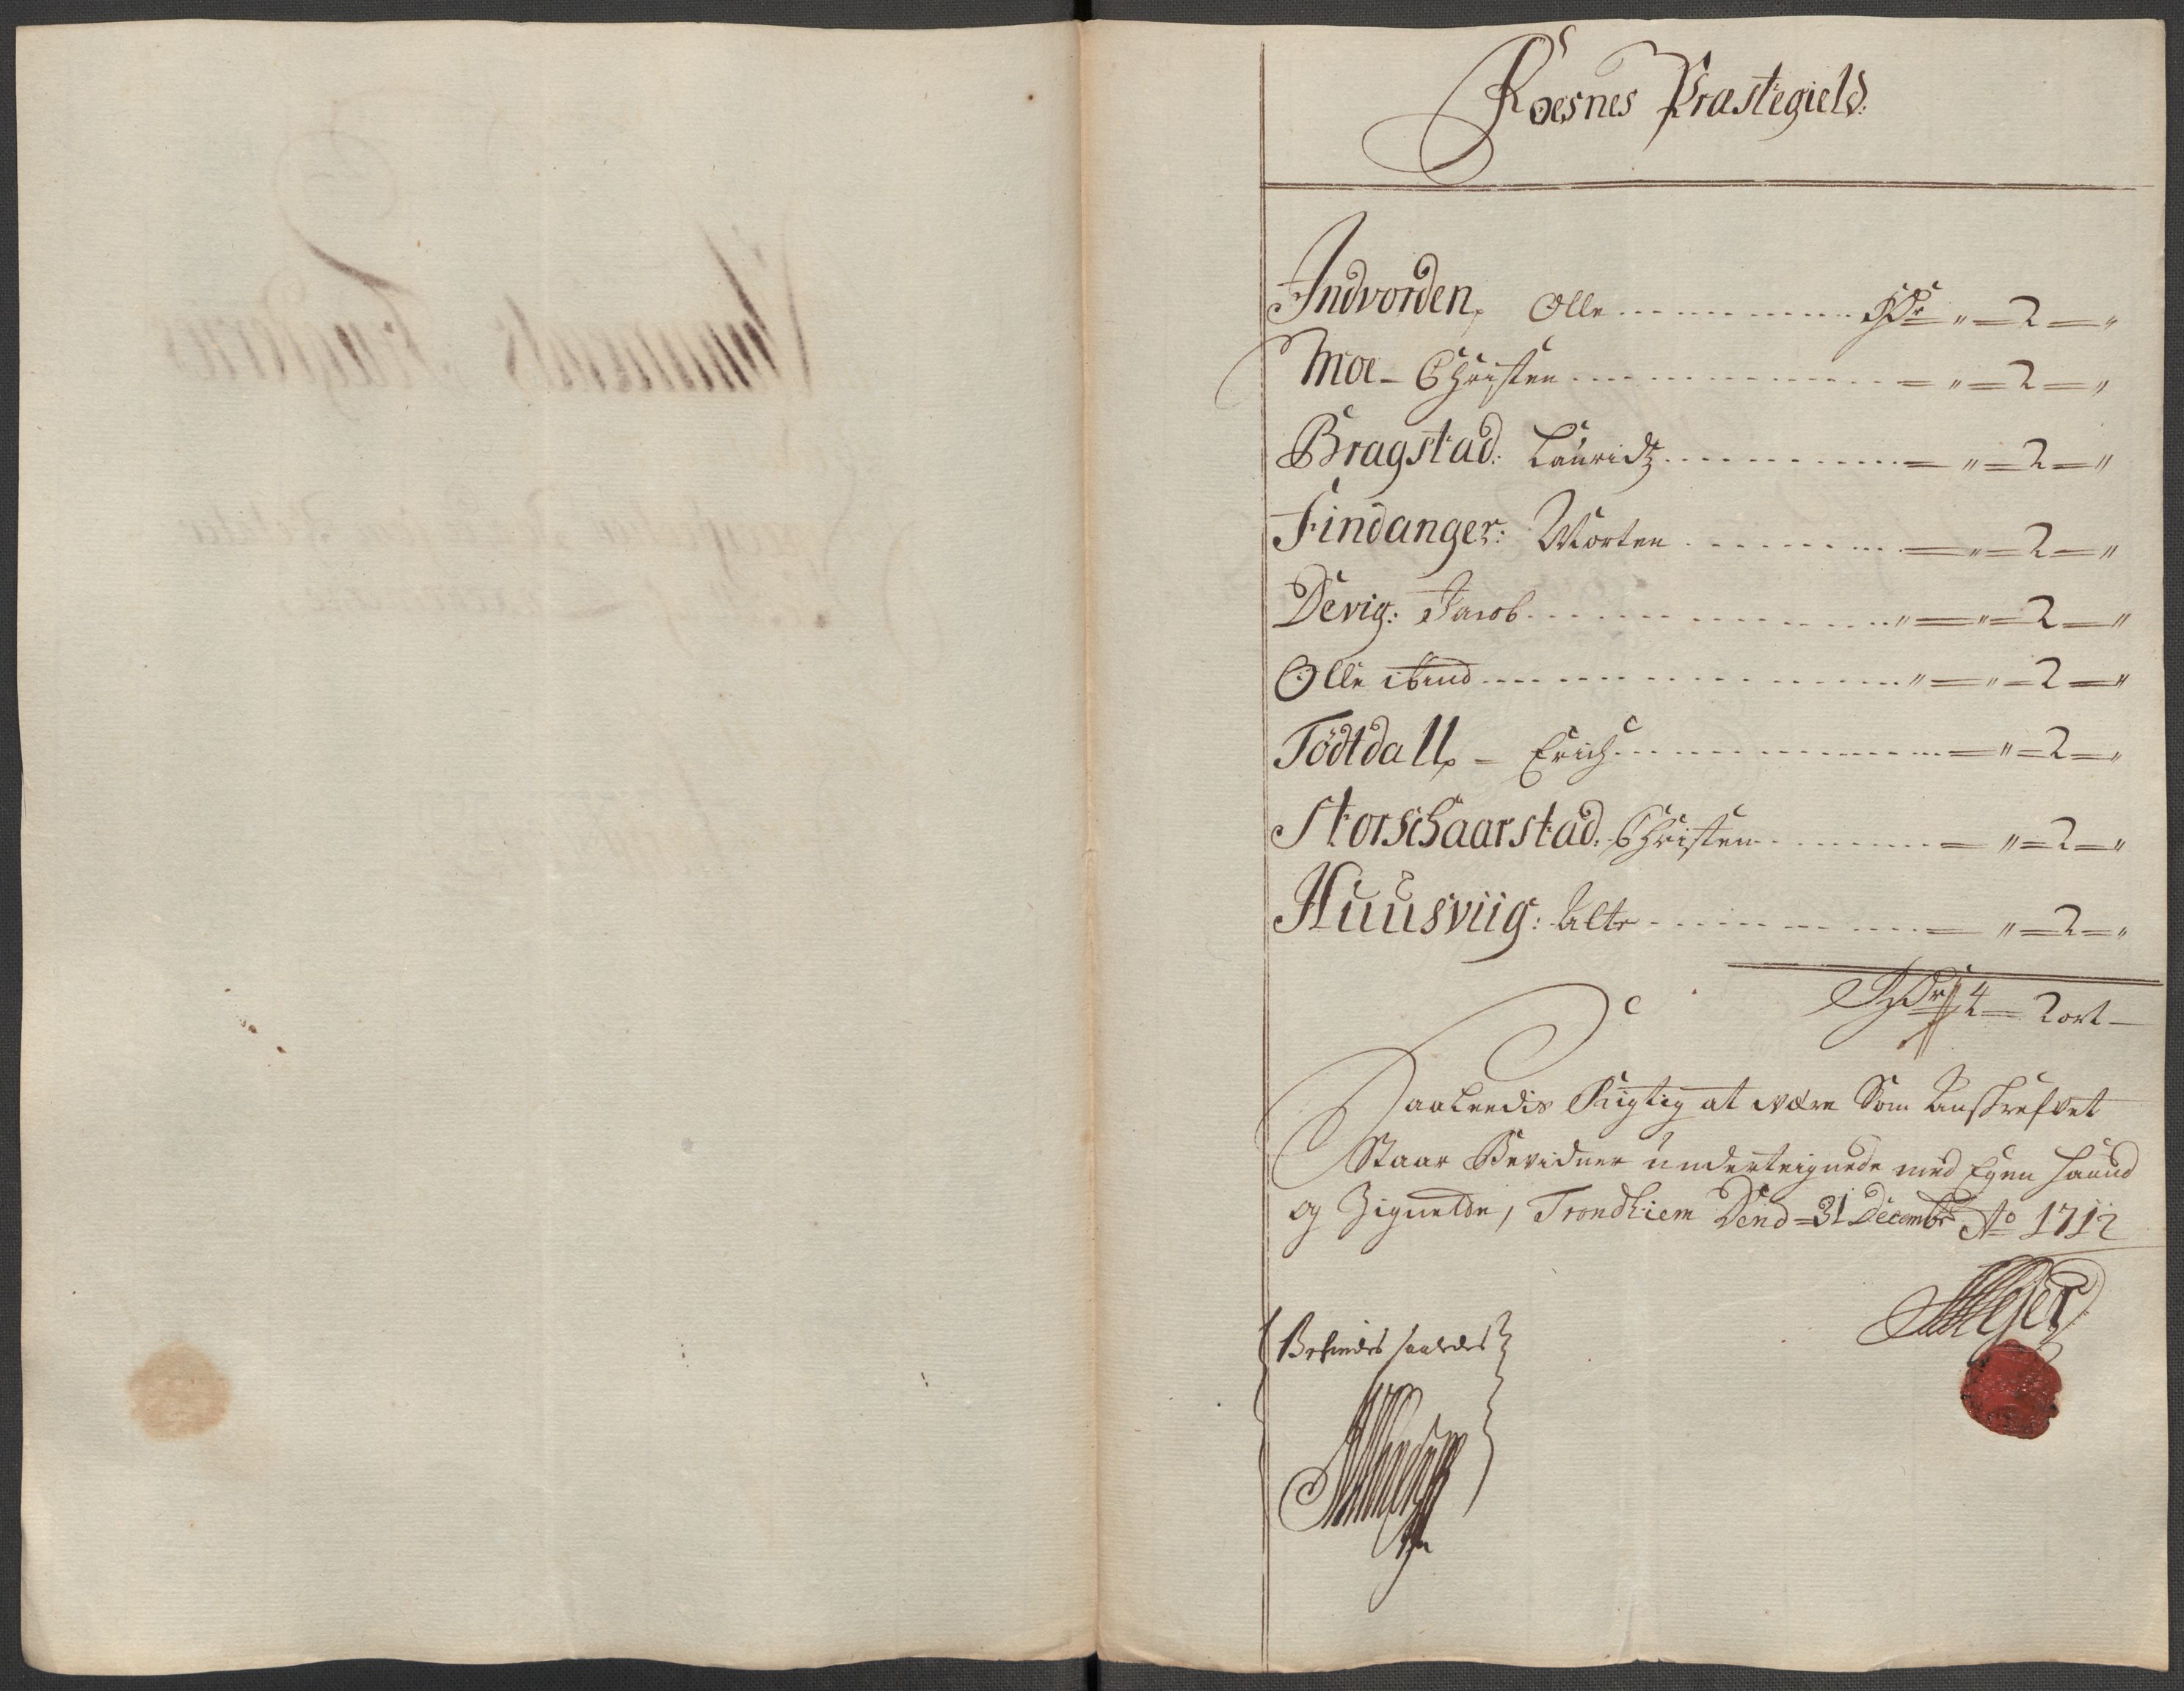 Roesnes Præstegield.
Indvorden, Olle - - - - Rdr " = 2 = "
Moe - Christen - - - - = " = 2 = "
Bragstad: Lauridtz - - - - = " = 2 = "
Findanger: Morten - - - - = " = 2 = "
Devig: Jacob - - - - " = " = 2 = "
Olle ibind - - - - " = " = 2 = "
Tödtdall, - Erich - - - - = " = 2 = "
Storschaarstad: Christen - - - - = " = 2 = "
Huusviig: - - - - = " = 2 = "
Rdr 4 = 2 ort -
Saaleedis Rigtig at være Som Anskrefvet
Staar Bevidner underteignede med Egen Haand
og Zignette, Trondhiem Dend = 31 Decembr Ao 1712
Befindes saaledes